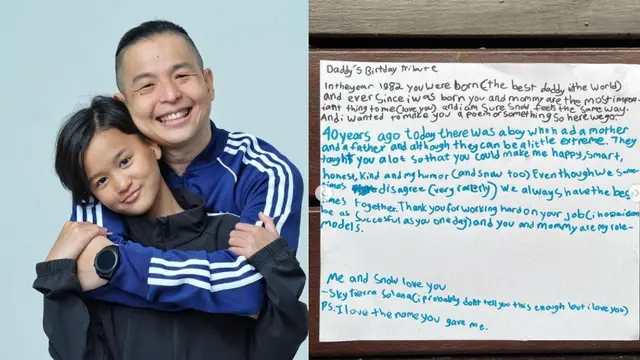 Daddy's Birtday tribute
In the year 1982 you were born (the best daddy in the world)
and ever since i was born you and mommy are the most impor-
tant thing to me (love you) and i am sure snow feels the same way.
And i wanted to make you a poem or something so here we go:
40 years ago today there was a boy who had a mother
and a father and although they can be a little extreme. They
taught you a lot so that you could make me happy, smart,
honest, Kind and my humor (and snow too) Even though we some
times disagree (very raterly) we always have the bes
times together. Thank you for working hard on your job (i hope i can
be as succesful as you one day) and you and mommy are my role-
models.
Me and Snow love you
- Sky Tierra Solana (i probably dont tell you this enough but i love you)
PS. I love the name you gave me.